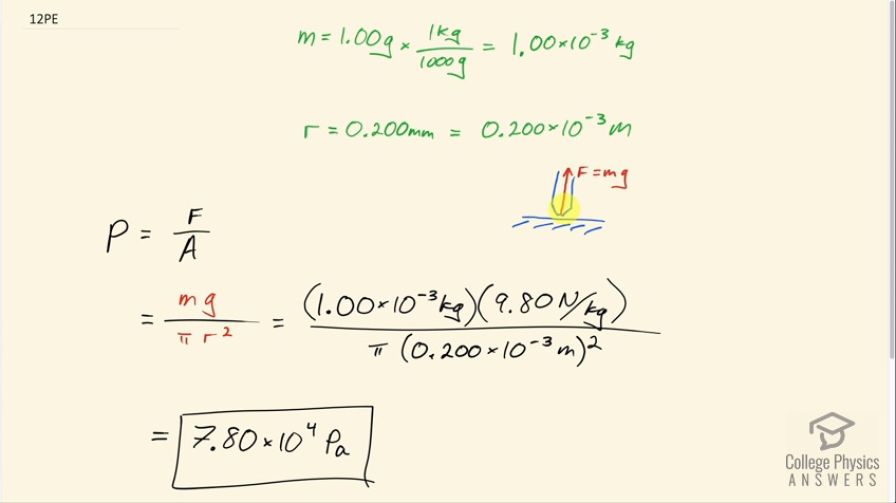 12PE
m = 1.00g × 1kg/1000g = 1.00×10⁻³ kg
r = 0.200mm = 0.200×10⁻³ m
F = mg
P = F/A
= mg/πr² = (1.00×10⁻³kg)(9.80 N/kg)/π(0.200×10⁻³ m)²
= 7.80×10⁴ Pa
College Physics
ANSWERS